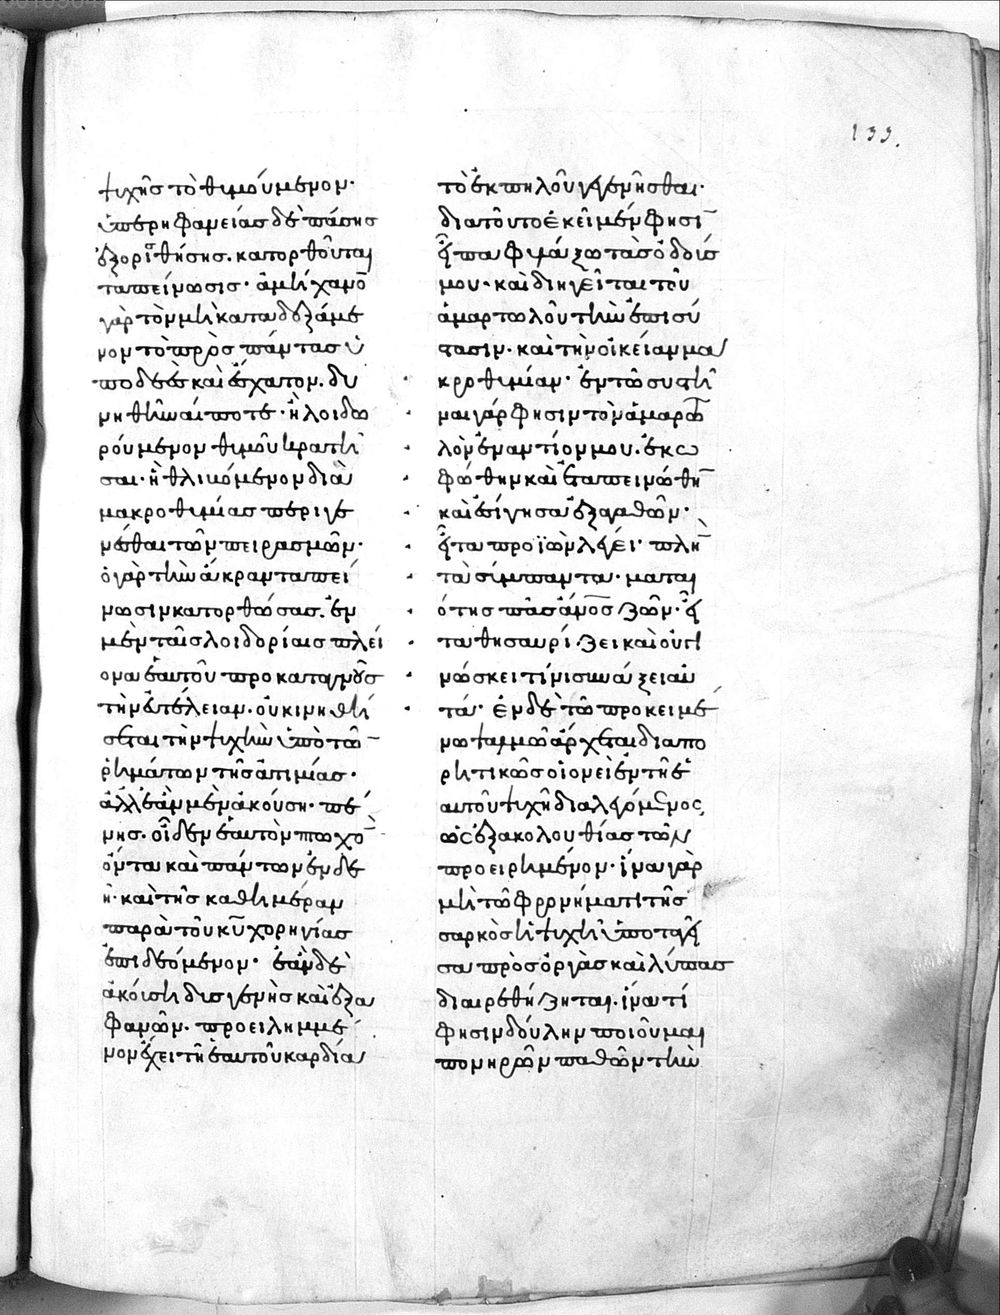 133.
ψυχῆς τὸ θυμούμενον·
ὑπερηφανείας δὲ πάσης
ἐξορισθήσης. κατορθοῦται
ταπείνωσις· ἀμήχανον
γὰρ τὸν μὴ καταδεξάμε
νον τὸ πρὸς πάντας ὑ
ποδεὲς καὶ ἔσχατον. δυ
νηθῆναί ποτε· ἢ λοιδο
ρούμενον θυμοῦ κρατῆ
σαι· ἢ θλιβόμενον διὰ
μακροθυμίας περιγε
νέσθαι τῶν πειρασμῶν·
ὁ γὰρ τὴν ἄκραν ταπεί
νωσιν κατορθώσας. ἐν
μὲν ταῖς λοιδορίαις πλεί
ονα ἑαυτοῦ προκαταγνοὺς
τὴν εὐτέλειαν. οὐ κινηθή
σεται τὴν ψυχὴν ὑπὸ τῶν
ῥημάτων τῆς ἀτιμίας·
ἀλλ' ἐὰν μὲν ἀκούσῃ· πέ
νης. οἶδεν ἑαυτὸν πτωχὸν
ὄντα καὶ πάντων ἐνδε
ῆ· καὶ τῆς καθημέραν
παρὰ τοῦ κυ χορηγίας
ἐπιδεόμενον· ἐὰν δὲ
ἀκούσῃ δυσγενὴς καὶ ἐξα
φανῶν. προειλημμέ
νον ἔχει τῇ ἑαυτοῦ καρδία
τὸ ἐκ πηλοῦ γεγενῆσθαι·
διατοῦτο ἐκεῖ μέν φησιν
ἔπα φυλάξω τὰς ὁδούς
μου· καὶ διηγεῖται τοῦ
ἁμαρτωλοῦ τὴν ἐπισύ
στασιν· καὶ τὴν οἰκείαν μα
κροθυμίαν· ἐν τῶ συστῆ
ναι γάρ φησιν τὸν ἁμαρτω
λὸν ἐναντίον μου. ἐκω
φώθην καὶ ἐταπεινώθην
καὶ ἐσίγησα ἐξ ἀγαθῶν·
εἶτα προϊὼν λέγει· πλὴν
τὰ σύμπαντα· μαται
ότης πᾶς ἄνος ζῶν· εἶ
τα θησαυρίζει καὶ οὐ γι
νώσκει τίνι συνάξει αὐ
τά· ἐν δὲ τῶ προκειμέ
νω ψαλμῶ ἄρχεται διαπο
ρητικῶς οἱονεὶ ἐν τῇ ἑ
αυτοῦ ψυχῇ διαλεγόμενος
ὡς ἐξακολουθίας τῶν
προειρημένον· ἵνα γὰρ
μὴ τῶ φρονήματι τῆς
σαρκὸς ἡ ψυχὴ ὑποταγεῖ
σα πρὸς ὀργὰς καὶ λύπας
διαιρεθήζηται. ἵνα τί
φησιν δούλην ποιοῦμαι
πονηρῶν παθῶν τὴν